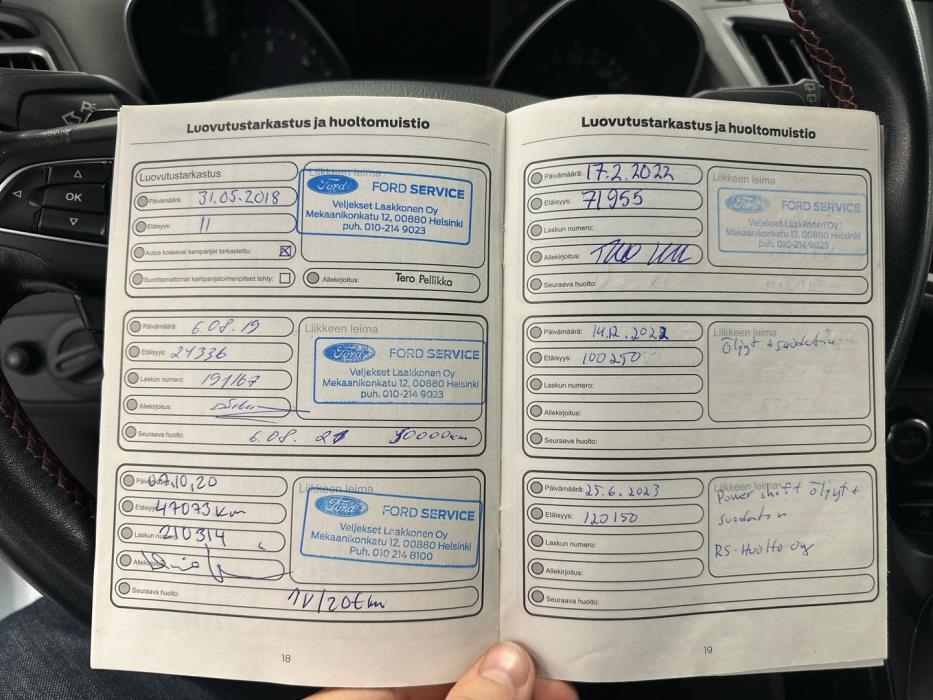 OK
Luovutustarkastus ja huoltomuistio
Luovutustarkastus
Päivämäärä: 31.05.2018
Etäisyys: 11
Autoa koskevat kampanjat tarkastettu:
Suorittamattomat kampanjatoimenpiteet tehty:
Liikkeen leima
Ford FORD SERVICE
Veljekset Laakkonen Oy
Mekaanikonkatu 12, 00880 Helsinki
puh. 010-214 9023
Allekirjoitus: Tero Pellikka
Päivämäärä: 6.08.19
Etäisyys: 24336
Laskun numero: 191167
Allekirjoitus:
Liikkeen leima
Ford FORD SERVICE
Veljekset Laakkonen Oy
Mekaanikonkatu 12, 00880 Helsinki
puh. 010-214 9023
Seuraava huolto: 6.08. 21
Päivämäärä: 10,20
Etäisyys: 47073 km
Laskun numero: 210314
Allekirjoitus:
Liikkeen leima
Ford FORD SERVICE
Veljekset Laakkonen Oy
Mekaanikonkatu 12, 00880 Helsinki
Puh. 010 214 8100
Seuraava huolto: 1V/20tkm
18
Luovutustarkastus ja huoltomuistio
Päivämäärä: 17.2.2022
Etäisyys: 71955
Laskun numero:
Allekirjoitus:
Liikkeen leima
Ford FORD SERVICE
Veljekset Laakkonen Oy
Mekaanikonkatu 12, 00880 Helsinki
puh. 010-214 9023
Seuraava huolto:
Päivämäärä: 14.12.2022
Etäisyys: 100250
Laskun numero:
Allekirjoitus:
Liikkeen leima
Öljyt + suodatin
Seuraava huolto:
Päivämäärä: 25.6.2023
Etäisyys: 120150
Laskun numero:
Allekirjoitus:
Liikkeen leima
Power shift öljyt +
suodatin
RS-Huolto Oy
Seuraava huolto:
19